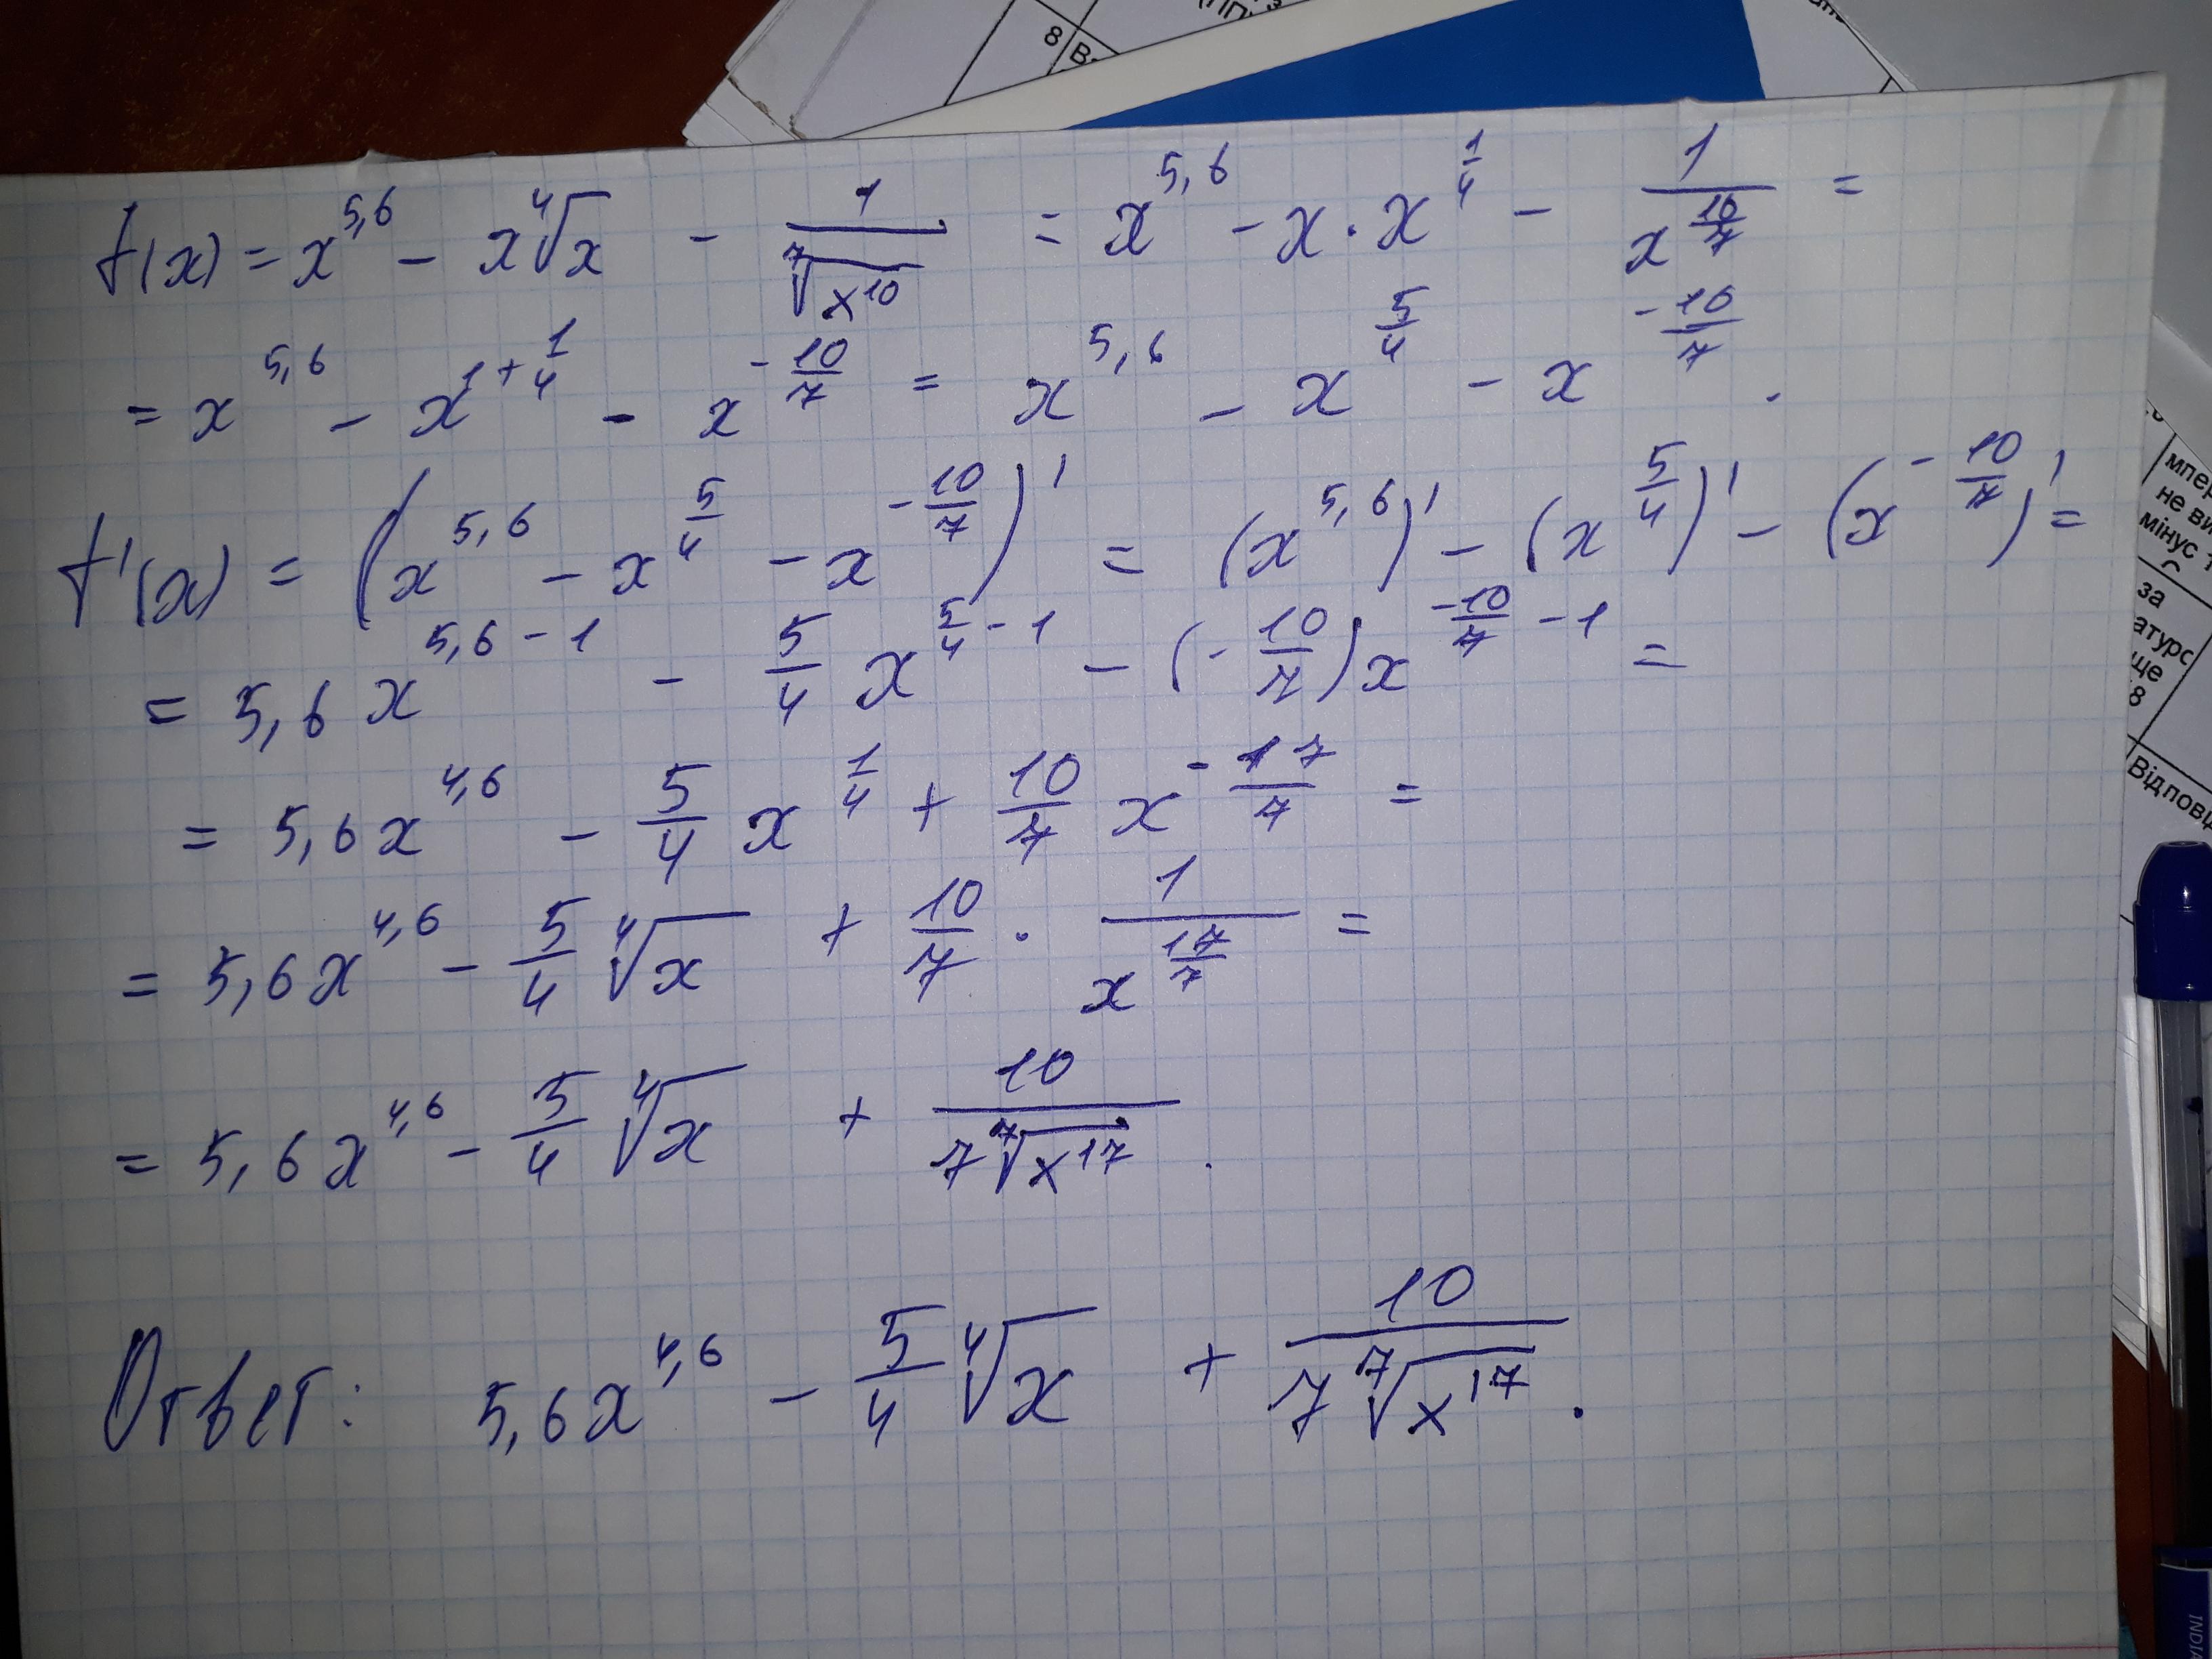 8
f(x) = x^{5,6} - x\sqrt[4]{x} - \frac{1}{\sqrt[7]{x^{10}}} = x^{5,6} - x \cdot x^{\frac{1}{4}} - \frac{1}{x^{\frac{10}{7}}} =
= x^{5,6} - x^{1+\frac{1}{4}} - x^{-\frac{10}{7}} = x^{5,6} - x^{\frac{5}{4}} - x^{-\frac{10}{7}}.
f'(x) = (x^{5,6} - x^{\frac{5}{4}} - x^{-\frac{10}{7}})' = (x^{5,6})' - (x^{\frac{5}{4}})' - (x^{-\frac{10}{7}})' =
= 5,6x^{5,6-1} - \frac{5}{4}x^{\frac{5}{4}-1} - (-\frac{10}{7})x^{-\frac{10}{7}-1} =
= 5,6x^{4,6} - \frac{5}{4}x^{\frac{1}{4}} + \frac{10}{7}x^{-\frac{17}{7}} =
= 5,6x^{4,6} - \frac{5}{4}\sqrt[4]{x} + \frac{10}{7} \cdot \frac{1}{x^{\frac{17}{7}}} =
= 5,6x^{4,6} - \frac{5}{4}\sqrt[4]{x} + \frac{10}{7\sqrt[7]{x^{17}}}.
Ответ: 5,6x^{4,6} - \frac{5}{4}\sqrt[4]{x} + \frac{10}{7\sqrt[7]{x^{17}}}.
не ви
мінус
за
ще
Відповід
INDIA